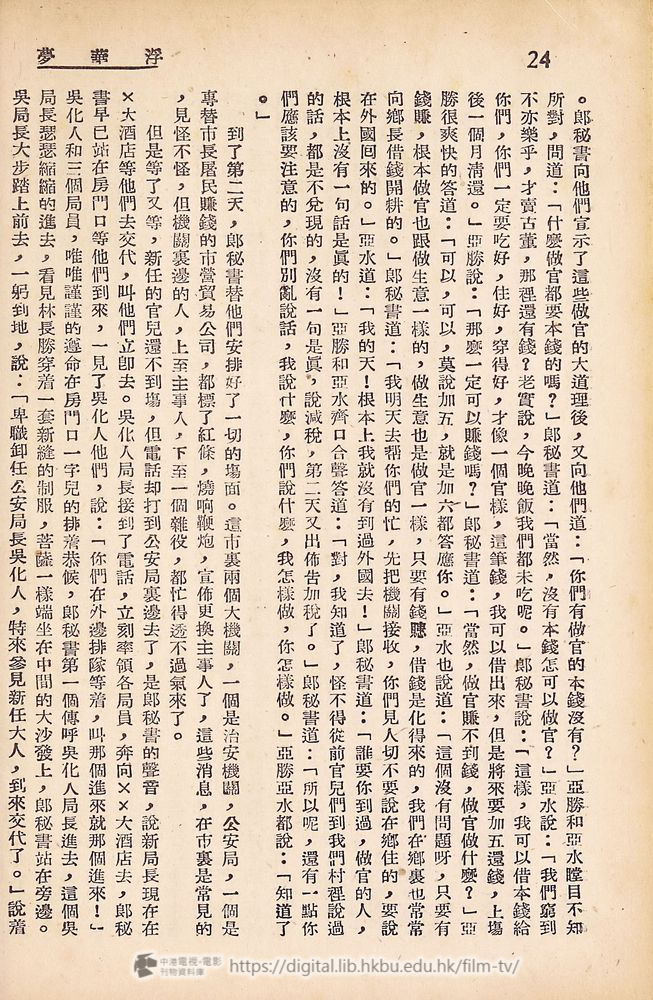 浮華夢
24
。郎秘書向他們宣示了這些做官的大道理後，又向他們道：「你們有做官的本錢沒有？」亞勝和亞水瞠目不知
所對，問道：「什麼做官都要本錢的嗎？」郎秘書道：「當然，沒有本錢怎可以做官？」亞水說：「我們窮到
不亦樂乎，才賣古董，那裡還有錢？老實說，今晚晚飯我們都未吃呢。」郎秘書說：「這樣，我可以借本錢給
你們，你們一定要吃好，住好，穿得好，才像一個官樣，這筆錢，我可以借出來，但是將來要加五還錢，上場
後一個月清還。」亞勝說：「那麼一定可以賺錢嗎？」郎秘書道：「當然，做官賺不到錢，做官做什麼？」亞
勝很爽快的答道：「可以，可以，莫說加五，就是加六都答應你。」亞水也說道：「這個沒有問題呀，只要有
錢賺，根本做官也跟做生意一樣的，做生意也是做官一樣，只要有錢賺，借錢是化得來的，我們在鄉裏也常常
向鄉長借錢開耕的。」郎秘書道：「我明天去帮你們的忙，先把機關接收，你們見人切不要說在鄉住的，要說
在外國囘來的。」亞水道：「我的天！根本上我就沒有到過外國去！」郎秘書道：「誰要你到過，做官的人，
根本上沒有一句話是眞的！」亞勝和亞水齊口合聲答道：「對，我知道了，怪不得從前官兒們到我們村裡說過
的話，都是不兌現的，沒有一句是眞，說減稅，第二天又出佈告加稅了。」郎秘書道：「所以呢，還有一點你
們應該要注意的，你們別亂說話，我說什麼，你們說什麼，我怎樣做，你怎樣做。」亞勝亞水都說：「知道了
。」
到了第二天，郎秘書替他們安排好了一切的塲面。這市裏兩個大機關，一個是治安機關，公安局，一個是
專替市長屠民賺錢的市營貿易公司，都標了紅條，燒响鞭炮，宣佈更換主事人了，這些消息，在市裏是常見的
，見怪不怪，但機關裏邊的人，上至主事人，下至一個雜役，都忙得透不過氣來了。
但是等了又等，新任的官兒還不到塲，但電話却打到公安局裏邊去了，是郎秘書的聲音，說新局長現在在
×大酒店等他們去交代，叫他們立卽去。吳化人局長接到了電話，立刻率領各局員，奔向××大酒店去，郎秘
書早巳站在房門口等他們到來，一見了吳化人他們，說：「你們在外邊排隊等着，叫那個進來就那個進來！」
吳化人和三個局員，唯唯謹謹的遵命在房門口一字兒的排着恭候，郎秘書第一個傳呼吳化人局長進去，這個吳
局長瑟瑟縮縮的進去，看見林長勝穿着一套新縫的制服，菩薩一樣端坐在中間的大沙發上，郎秘書站在旁邊。
吳局長大步踏上前去，一躬到地，說：「卑職卸任公安局長吳化人，特來參見新任大人，到來交代了。」說着
中港電視·電影
刊物資料庫
https://digital.lib.hkbu.edu.hk/film-tv/